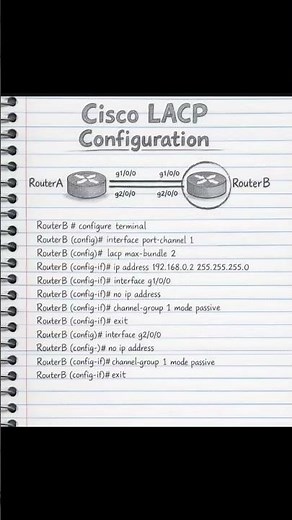 Cisco LACP
Configuration
g1/0/0 g1/0/0
RouterA RouterB
g2/0/0 g2/0/0
RouterB # configure terminal
RouterB (config)# interface port-channel 1
RouterB (config)# lacp max-bundle 2
RouterB (config-if)# ip address 192.168.0.2 255.255.255.0
RouterB (config-if)# interface g1/0/0
RouterB (config-if)# no ip address
RouterB (config-if)# channel-group 1 mode passive
RouterB (config-if)# exit
RouterB (config)# interface g2/0/0
RouterB (config-)# no ip address
RouterB (config-if)# channel-group 1 mode passive
RouterB (config-if)# exit